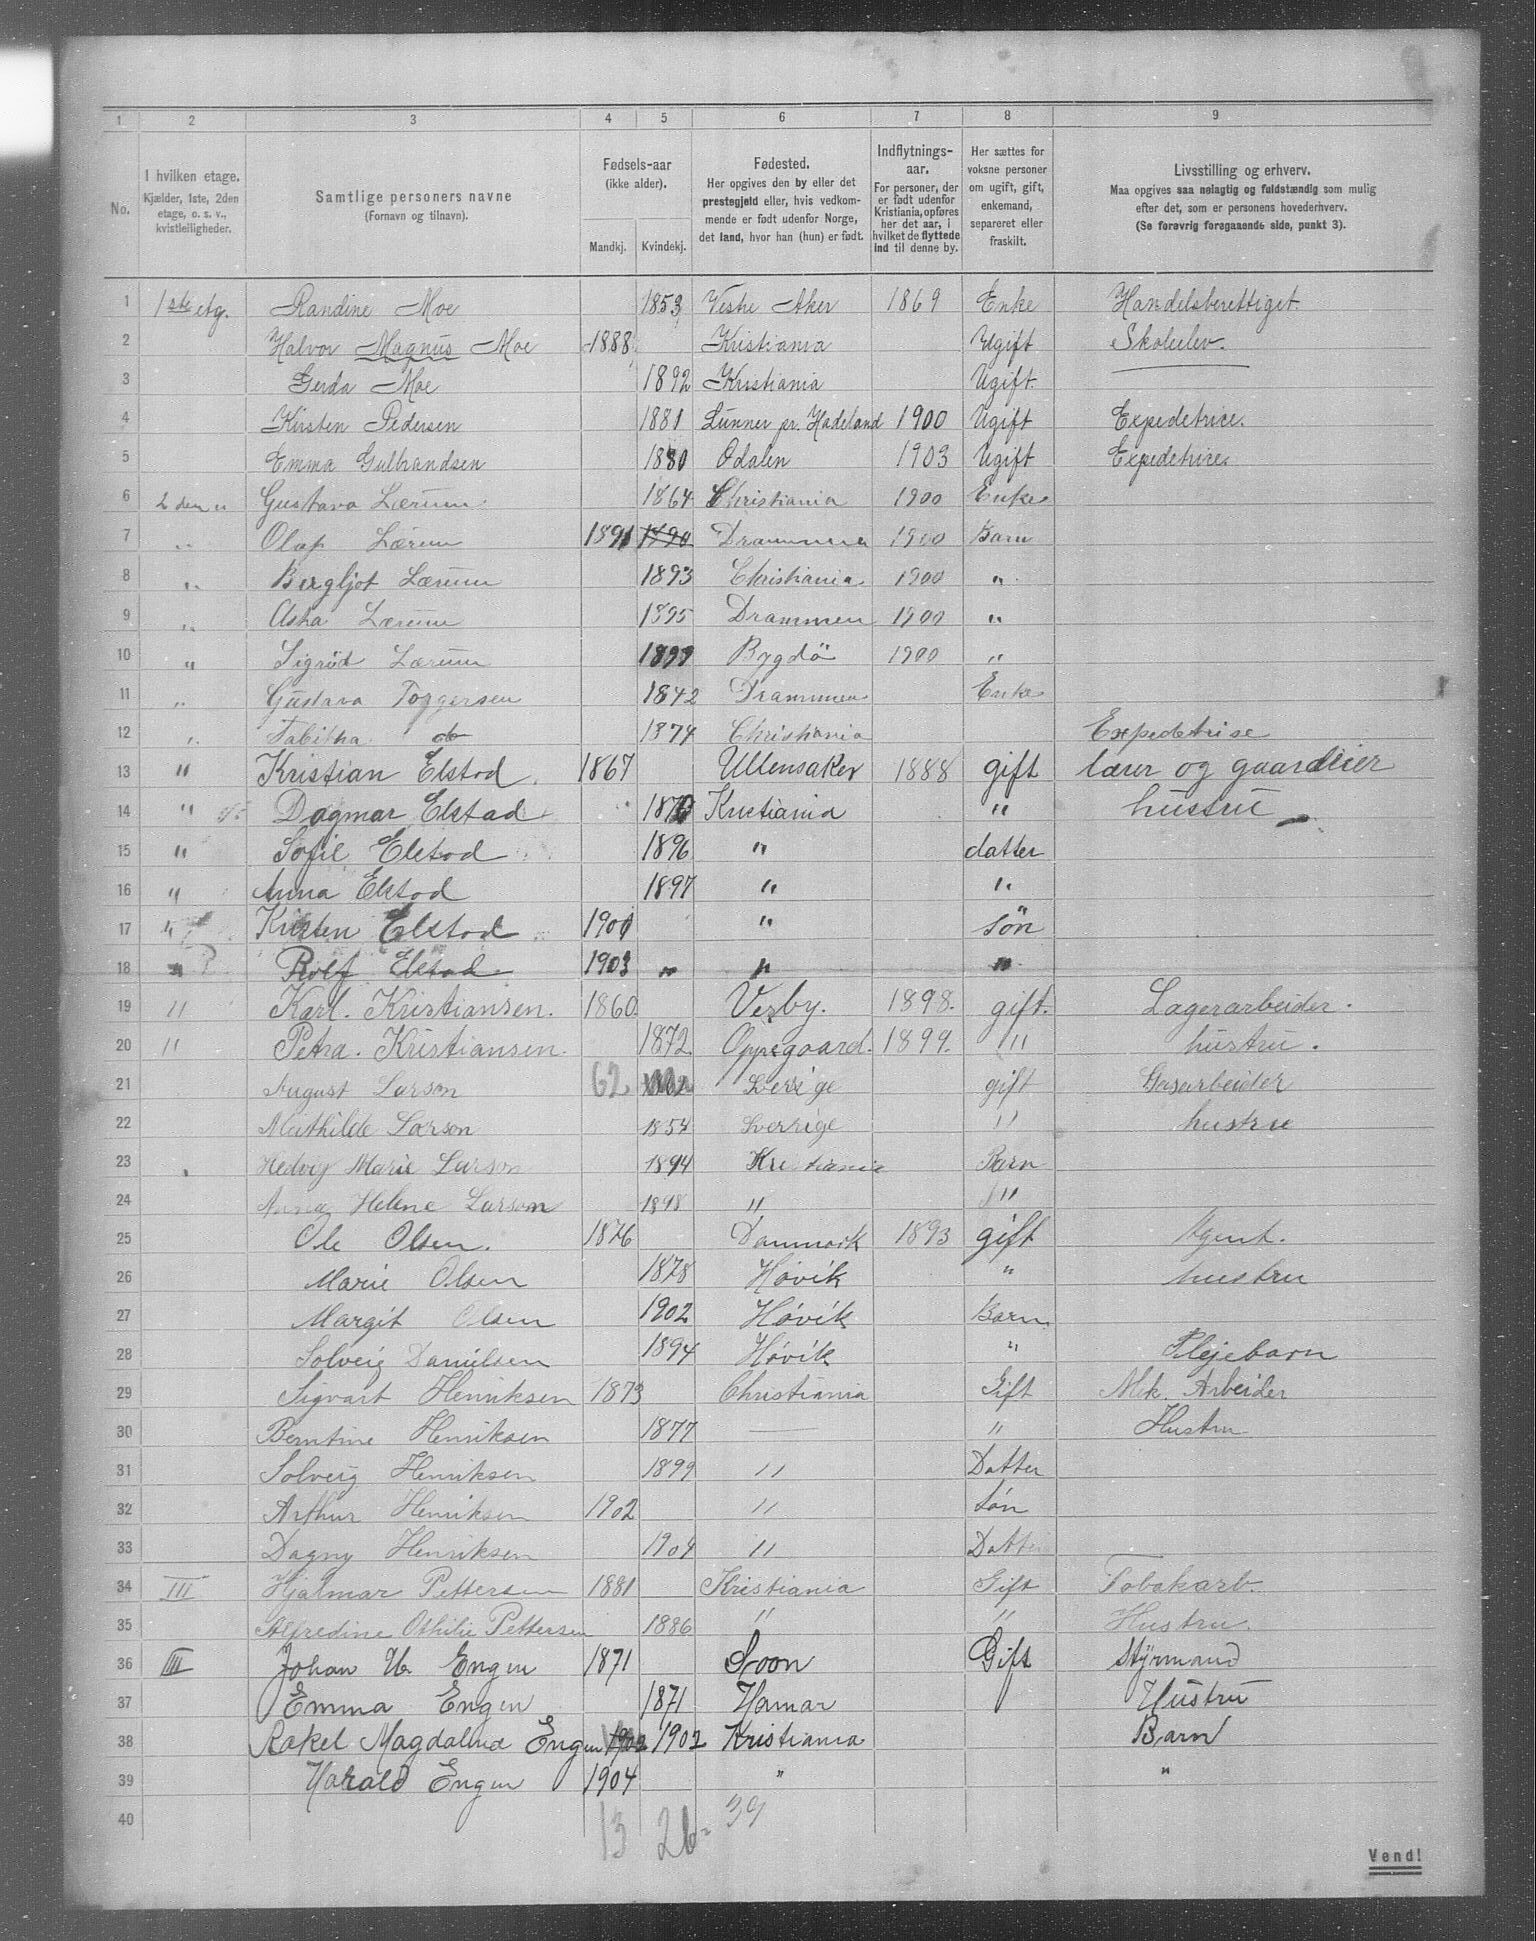 1 2 3 4 5 6 7 8 9
No.
I hvilken etage.
Kjælder, 1ste, 2den
etage, o. s. v.,
kvistleiligheder.
Samtlige personers navne
(Fornavn og tilnavn).
Fødsels-aar
(ikke alder).
Mandkj. Kvindekj.
Fødested.
Her opgives den by eller det
prestegjeld eller, hvis vedkom-
mende er født udenfor Norge,
det land, hvor han (hun) er født.
Indflytnings-
aar.
For personer, der
er født udenfor
Kristiania, opføres
her det aar, i
hvilket de flyttede
ind til denne by.
Her sættes for
voksne personer
om ugift, gift,
enkemand,
separeret eller
fraskilt.
Livsstilling og erhverv.
Maa opgives saa nøiagtig og fuldstændig som mulig
efter det, som er personens hovederhverv.
(Se forøvrig foregaaende side, punkt 3).
1 1ste etg. Randine Moe 1853 Vestre Aker 1869 Enke Handelsberettiget.
2 Halvor Magnus Moe 1888 Kristiania Ugift Skoleelev.
3 Gerda Moe 1892 Kristiania Ugift.
4 Kirsten Pedersen 1881 Lunner pr. Hadeland 1900 Ugift Expedetrice.
5 Emma Gulbrandsen 1880 Odalen 1903 Ugift Expedetrice.
6 2 den " Gustava Lærum 1864 Christiania 1900 Enke
7 " Olaf Lærum 1891 1890 Drammen 1900 Barn
8 " Bergljot Lærum 1893 Christiania 1900 "
9 " Asta Lærum 1895 Drammen 1900 "
10 " Sigrid Lærum 1899 Bygdö 1900 "
11 " Gustava Torgersen 1842 Drammen Enke
12 " Tabitha do 1874 Christiania Expedetrise
13 " Kristian Elstad 1867 Ullensaker 1888 gift lærer og gaardeier
14 " Dagmar Elstad 1870 Kristiania " hustru
15 " Sofie Elstad 1896 " datter
16 " Anna Elstad 1897 " "
17 " Kirsten Elstad 1901 " søn
18 " Rolf Elstad 1903 " " "
19 " Karl. Kristiansen. 1860. Vesby. 1898. gift. Lagerarbeider.
20 " Petra. Kristiansen. 1872 Oppegaard. 1899. " hustru.
21 August Larson 62 1862 Sverige gift Gasarbeider
22 Mathilde Larson 1854 Sverrige " hustru
23 Hedvig Marie Larson 1894 Kristiania Barn
24 Anna Helene Larson 1898 " "
25 Ole Olsen. 1876 Danmark 1893 gift Agent.
26 Marie Olsen 1878 Høvik " hustru
27 Margit Olsen 1902 Høvik Barn
28 Solveig Danielsen 1894 Høvik " Plejebarn
29 Sigvart Henriksen 1873 Christiania Gift Mek. Arbeider
30 Berntine Henriksen 1877 — " Hustru
31 Solveig Henriksen 1899 " Datter
32 Arthur Henriksen 1902 " Søn
33 Dagny Henriksen 1904 " Datter
34 III Hjalmar Pettersen 1881 Kristiania Gift Tobakarb.
35 Alfredine Othilie Pettersen 1886 " " Hustru.
36 IIII Johan U. Engen 1871 Soon Gift Styrmand
37 Emma Engen 1871 Hamar Hustru
38 Rakel Magdalena Engen 1902 1902 Kristiania Barn
39 Harald Engen 1904 " "
40
13 26 - 39
Vend!